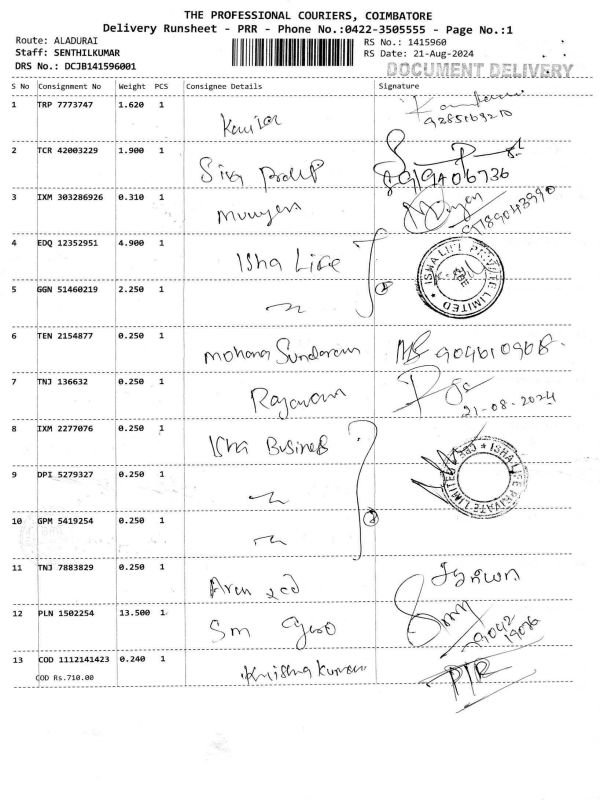 THE PROFESSIONAL COURIERS, COIMBATORE
Delivery Runsheet - PRR - Phone No.:0422-3505555 - Page No.:1
Route: ALADURAI
RS No.: 1415960
Staff: SENTHILKUMAR
RS Date: 21-Aug-2024
DRS No.: DCJB141596001
DOCUMENT DELIVERY
S No Consignment No Weight PCS Consignee Details Signature
1 TRP 7773747 1.620 1
2 TCR 42003229 1.900 1 Siva
3 IXM 303286926 0.310 1
4 EDQ 12352951 4.900 1 Isha Life
ISHA LIFE PRIVATE LIMITED
5 GGN 51460219 2.250 1
6 TEN 2154877 0.250 1 Mohana Sundaram
7 TNJ 136632 0.250 1 Rajaram
21-08-2024
8 IXM 2277076 0.250 1 Isha Business
ISHA LIFE PRIVATE LIMITED
9 DPI 5279327 0.250 1
10 GPM 5419254 0.250 1
11 TNJ 7883829 0.250 1
12 PLN 1502254 13.500 1 Sm
13 COD 1112141423 0.240 1 Krishna Kumar
COD Rs.710.00